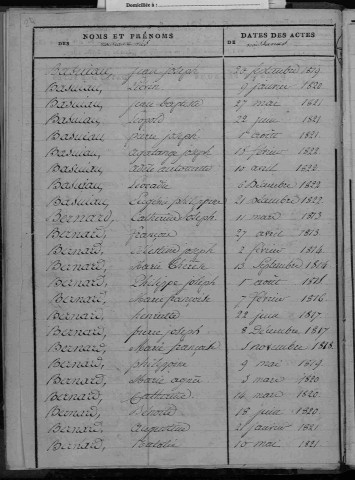 Domiciliée à
NOMS ET PRÉNOMS
DATES DES ACTES
DES
DE
Basuiau, Jean joseph 26 septembre 1819
Basuiau, 9 janvier 1820
Basuiau, jean baptiste 27 mai 1821
Basuiau, léopold 22 juin 1821
Basuiau, pierre joseph 1 août 1821
Basuiau, joseph 15 février 1822
Basuiau, 10 avril 1822
Basuiau, 6 décembre 1822
Basuiau, Eugénie philippine 21 décembre 1822
Bernard, Catherine joseph 11 mars 1813
Bernard, françois 27 avril 1813
Bernard, joseph 2 février 1814
Bernard, Marie Thérèse 13 septembre 1814
Bernard, Philippe joseph 1 août 1815
Bernard, Marie françoise 7 février 1816
Bernard, henriette 22 juin 1817
Bernard, pierre joseph 8 décembre 1817
Bernard, Marie françoise 3 novembre 1818
Bernard, philippine 9 mai 1819
Bernard, Marie agnès 3 mars 1820
Bernard, Catherine 14 mars 1820
Bernard, Benoit 18 juin 1820
Bernard, Augustine 21 janvier 1821
Bernard, Natalie 10 mai 1821